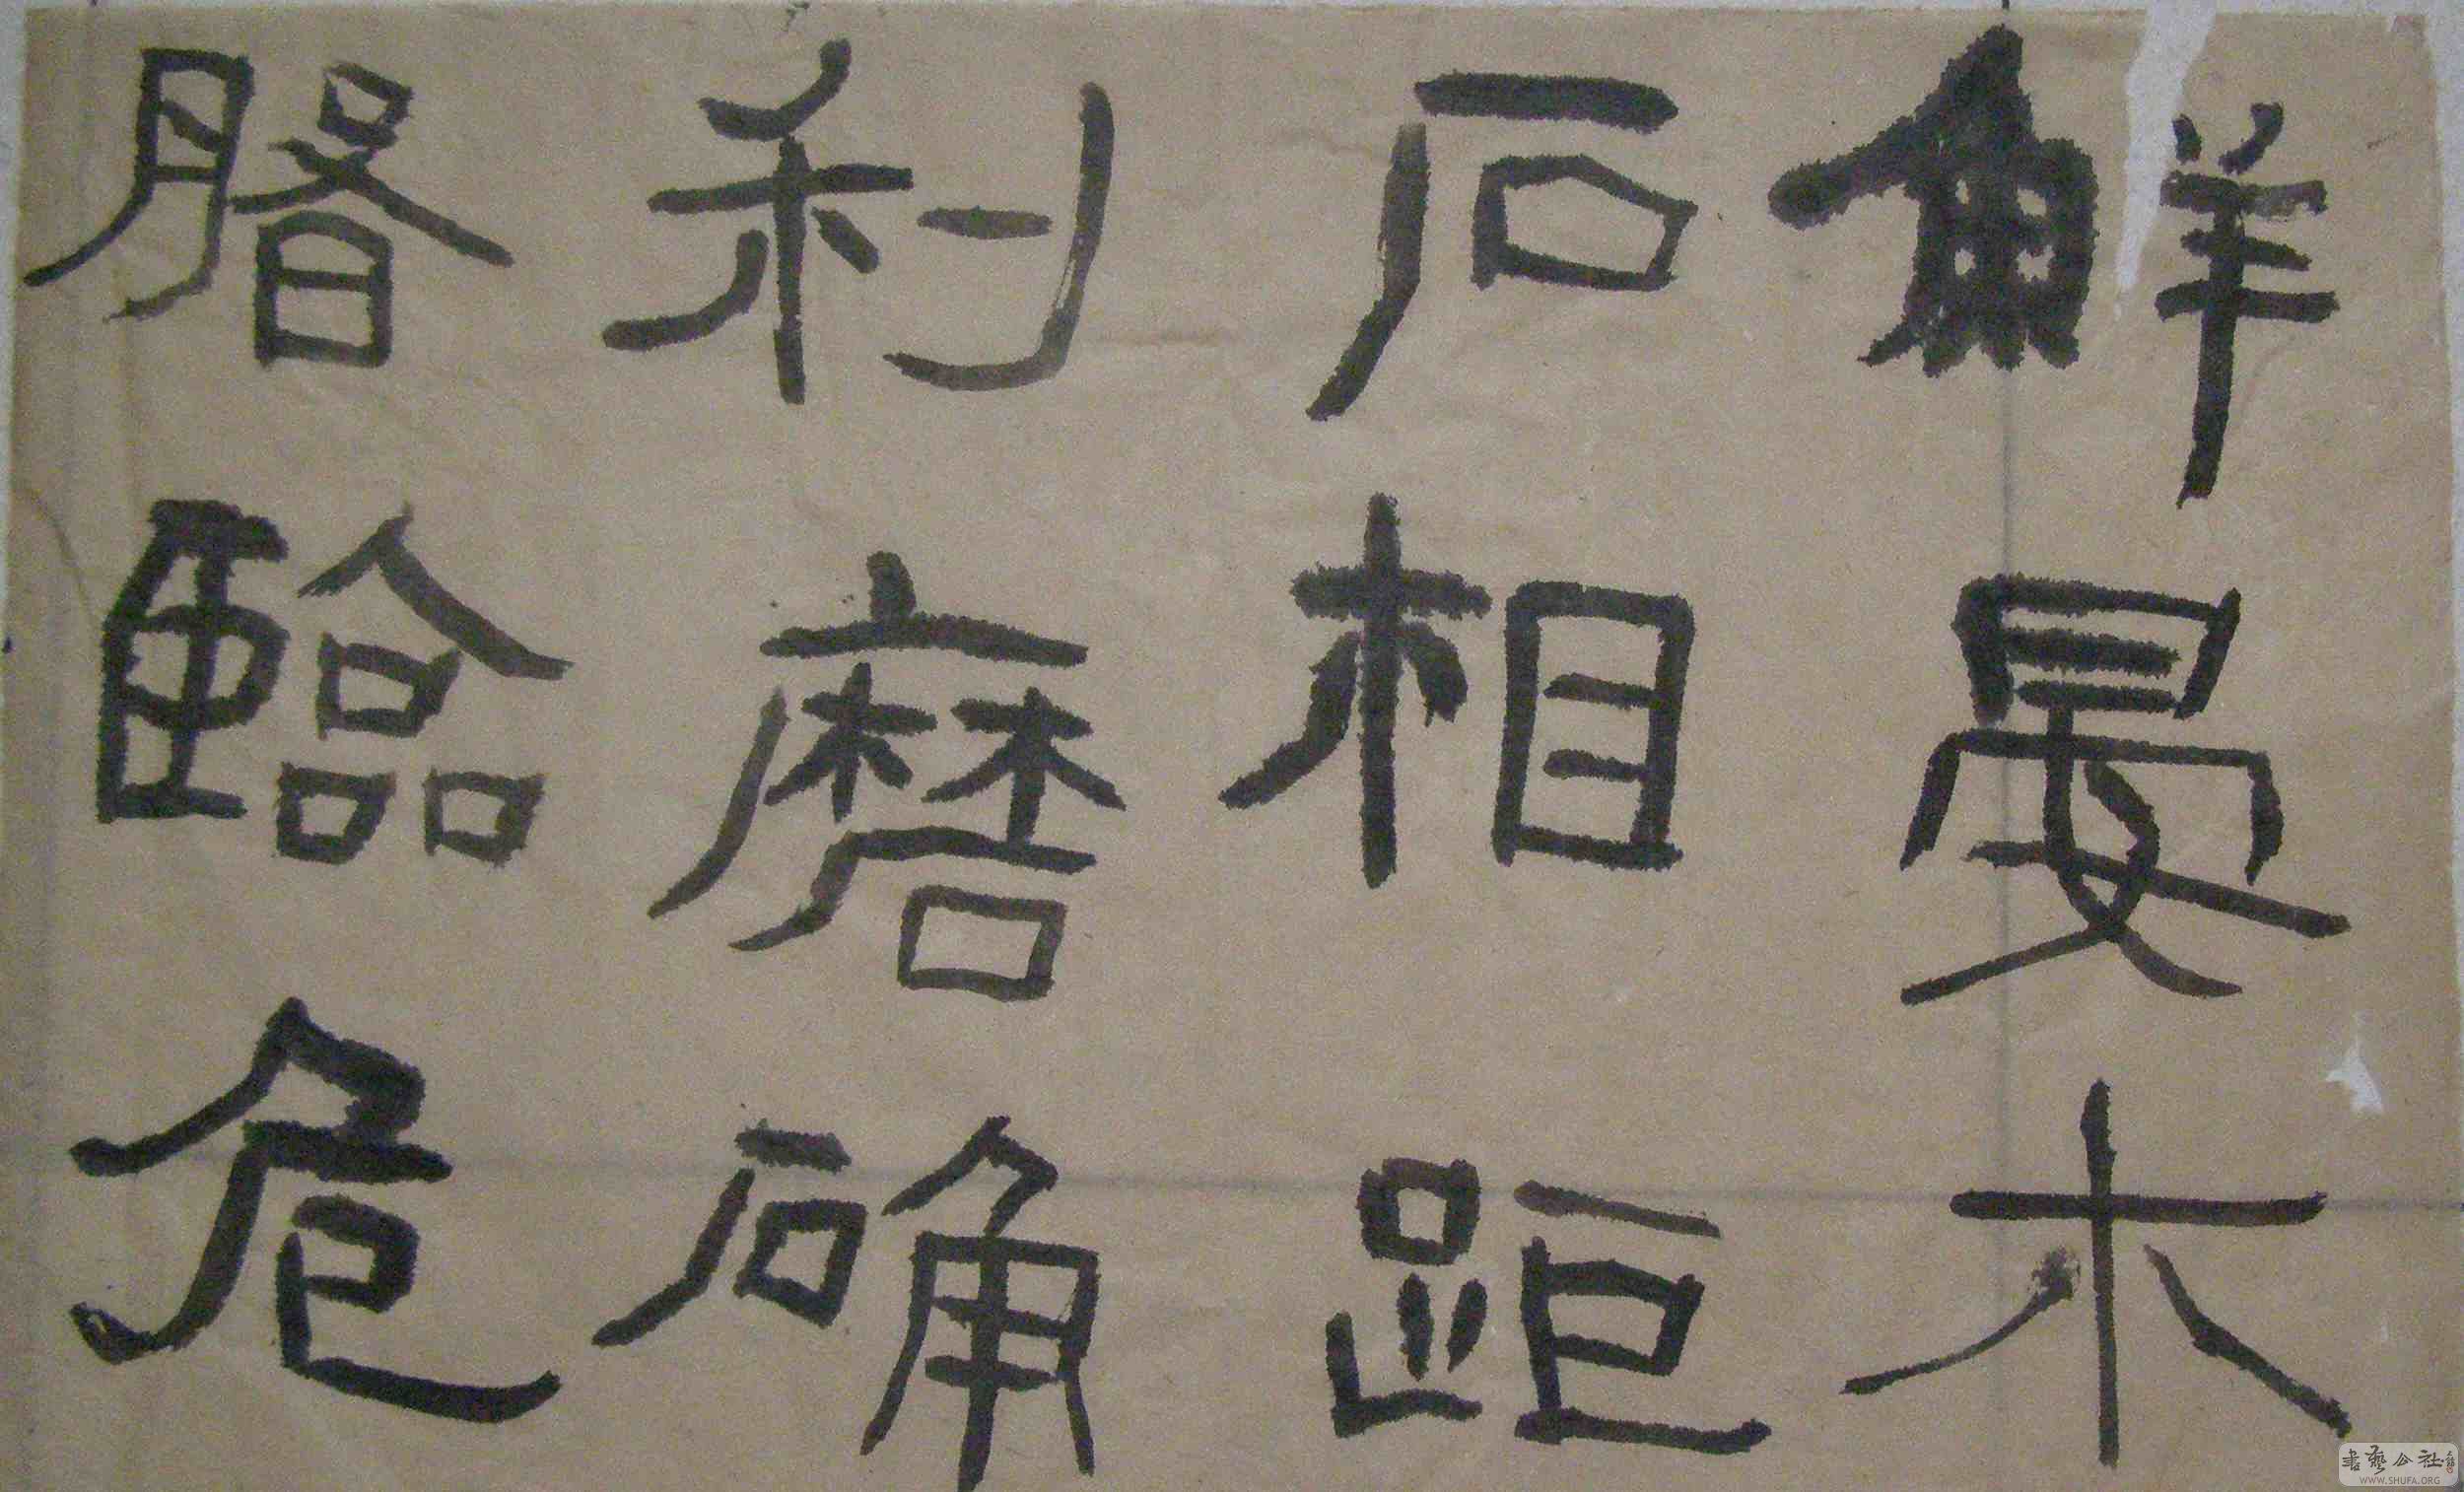 鮮晏木
石相距
利磨确
磐臨危
書藝公社
WWW.SHUFA.ORG